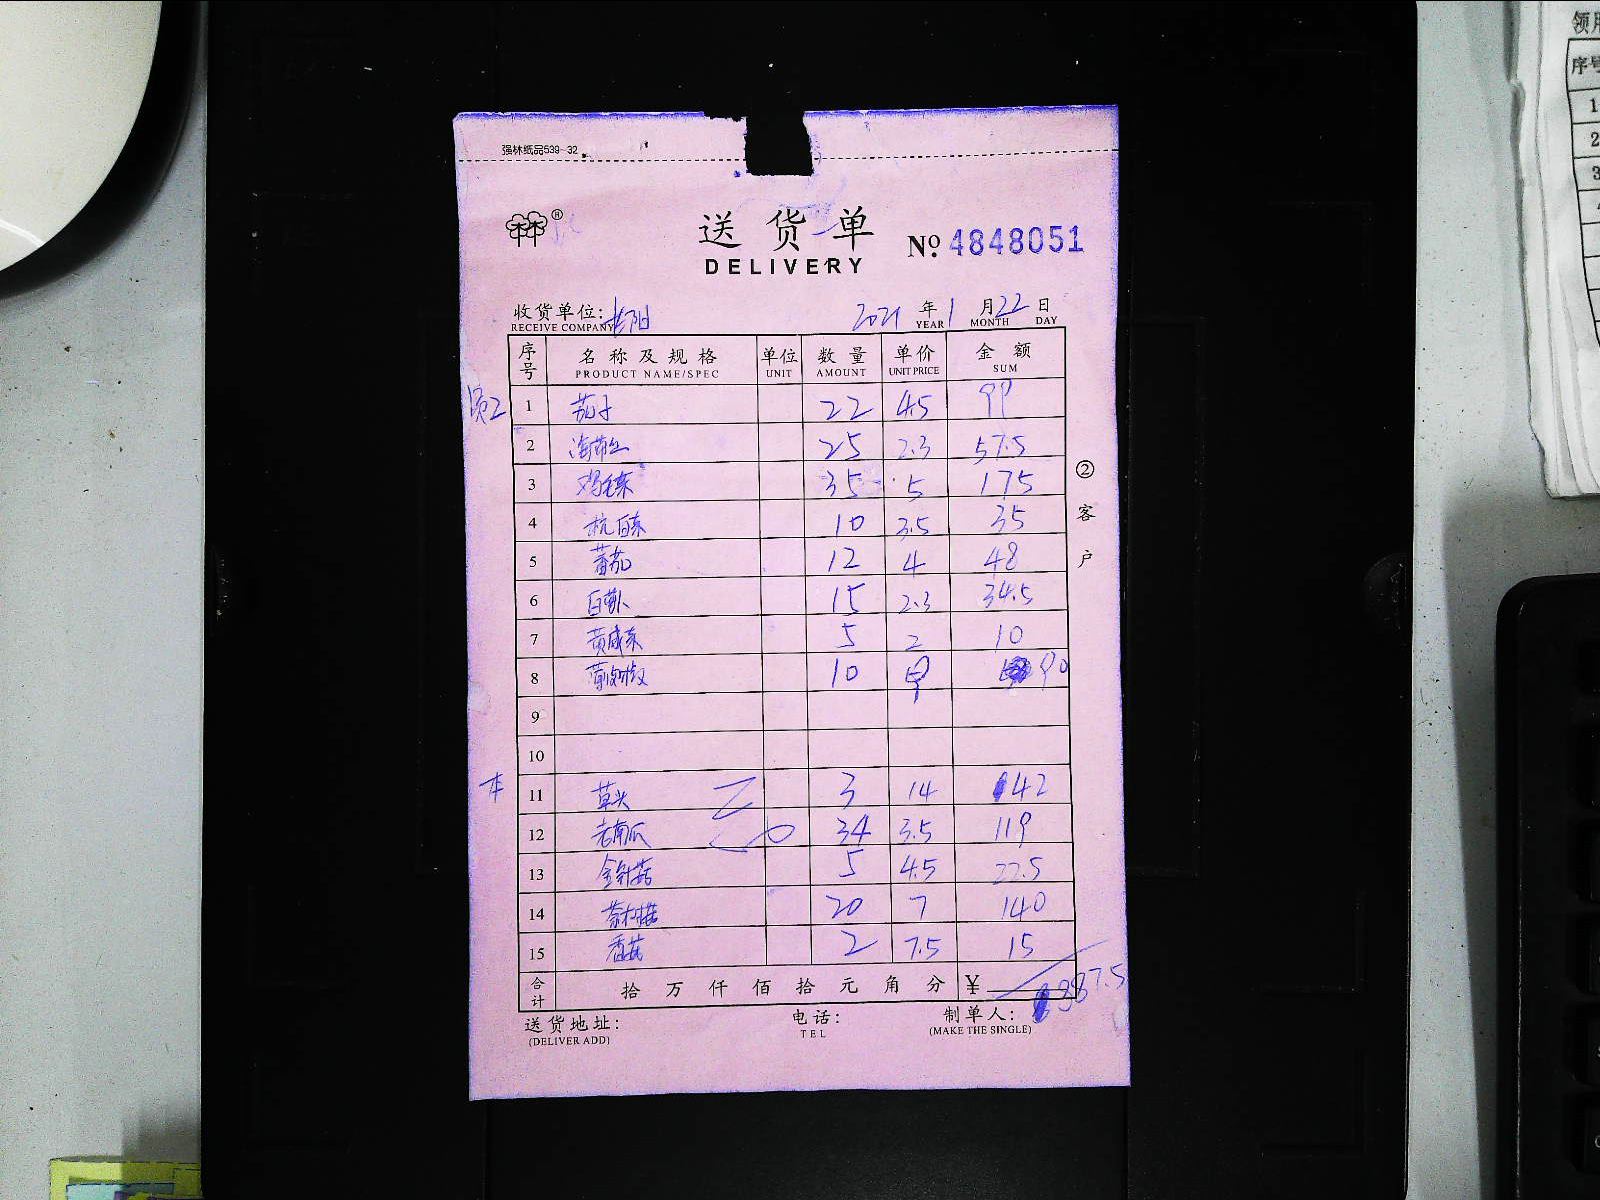 强林纸品539-32
林林®
送货单
DELIVERY
№ 4848051
收货单位:
RECEIVE COMPANY
2021 年 1 月 22 日
YEAR MONTH DAY
序号 名称及规格 单位 数量 单价 金额
PRODUCT NAME/SPEC UNIT AMOUNT UNIT PRICE SUM
员工 1 茄子 22 4.5 99
2 海带丝 25 2.3 57.5
3 鸡毛菜 35 5 175
4 杭白菜 10 3.5 35
5 蕃茄 12 4 48
6 白萝卜 15 2.3 34.5
7 黄咸菜 5 2 10
8 10 9 90
9
10
本 11 草头 3 14 42
12 老南瓜 34 3.5 119
13 金针菇 5 4.5 22.5
14 茶树菇 20 7 140
15 香菇 2 7.5 15
合计 拾 万 仟 佰 拾 元 角 分 ¥ 887.5
②客户
送货地址: 电话: 制单人:
(DELIVER ADD) TEL (MAKE THE SINGLE)
领用
序号
1
2
3